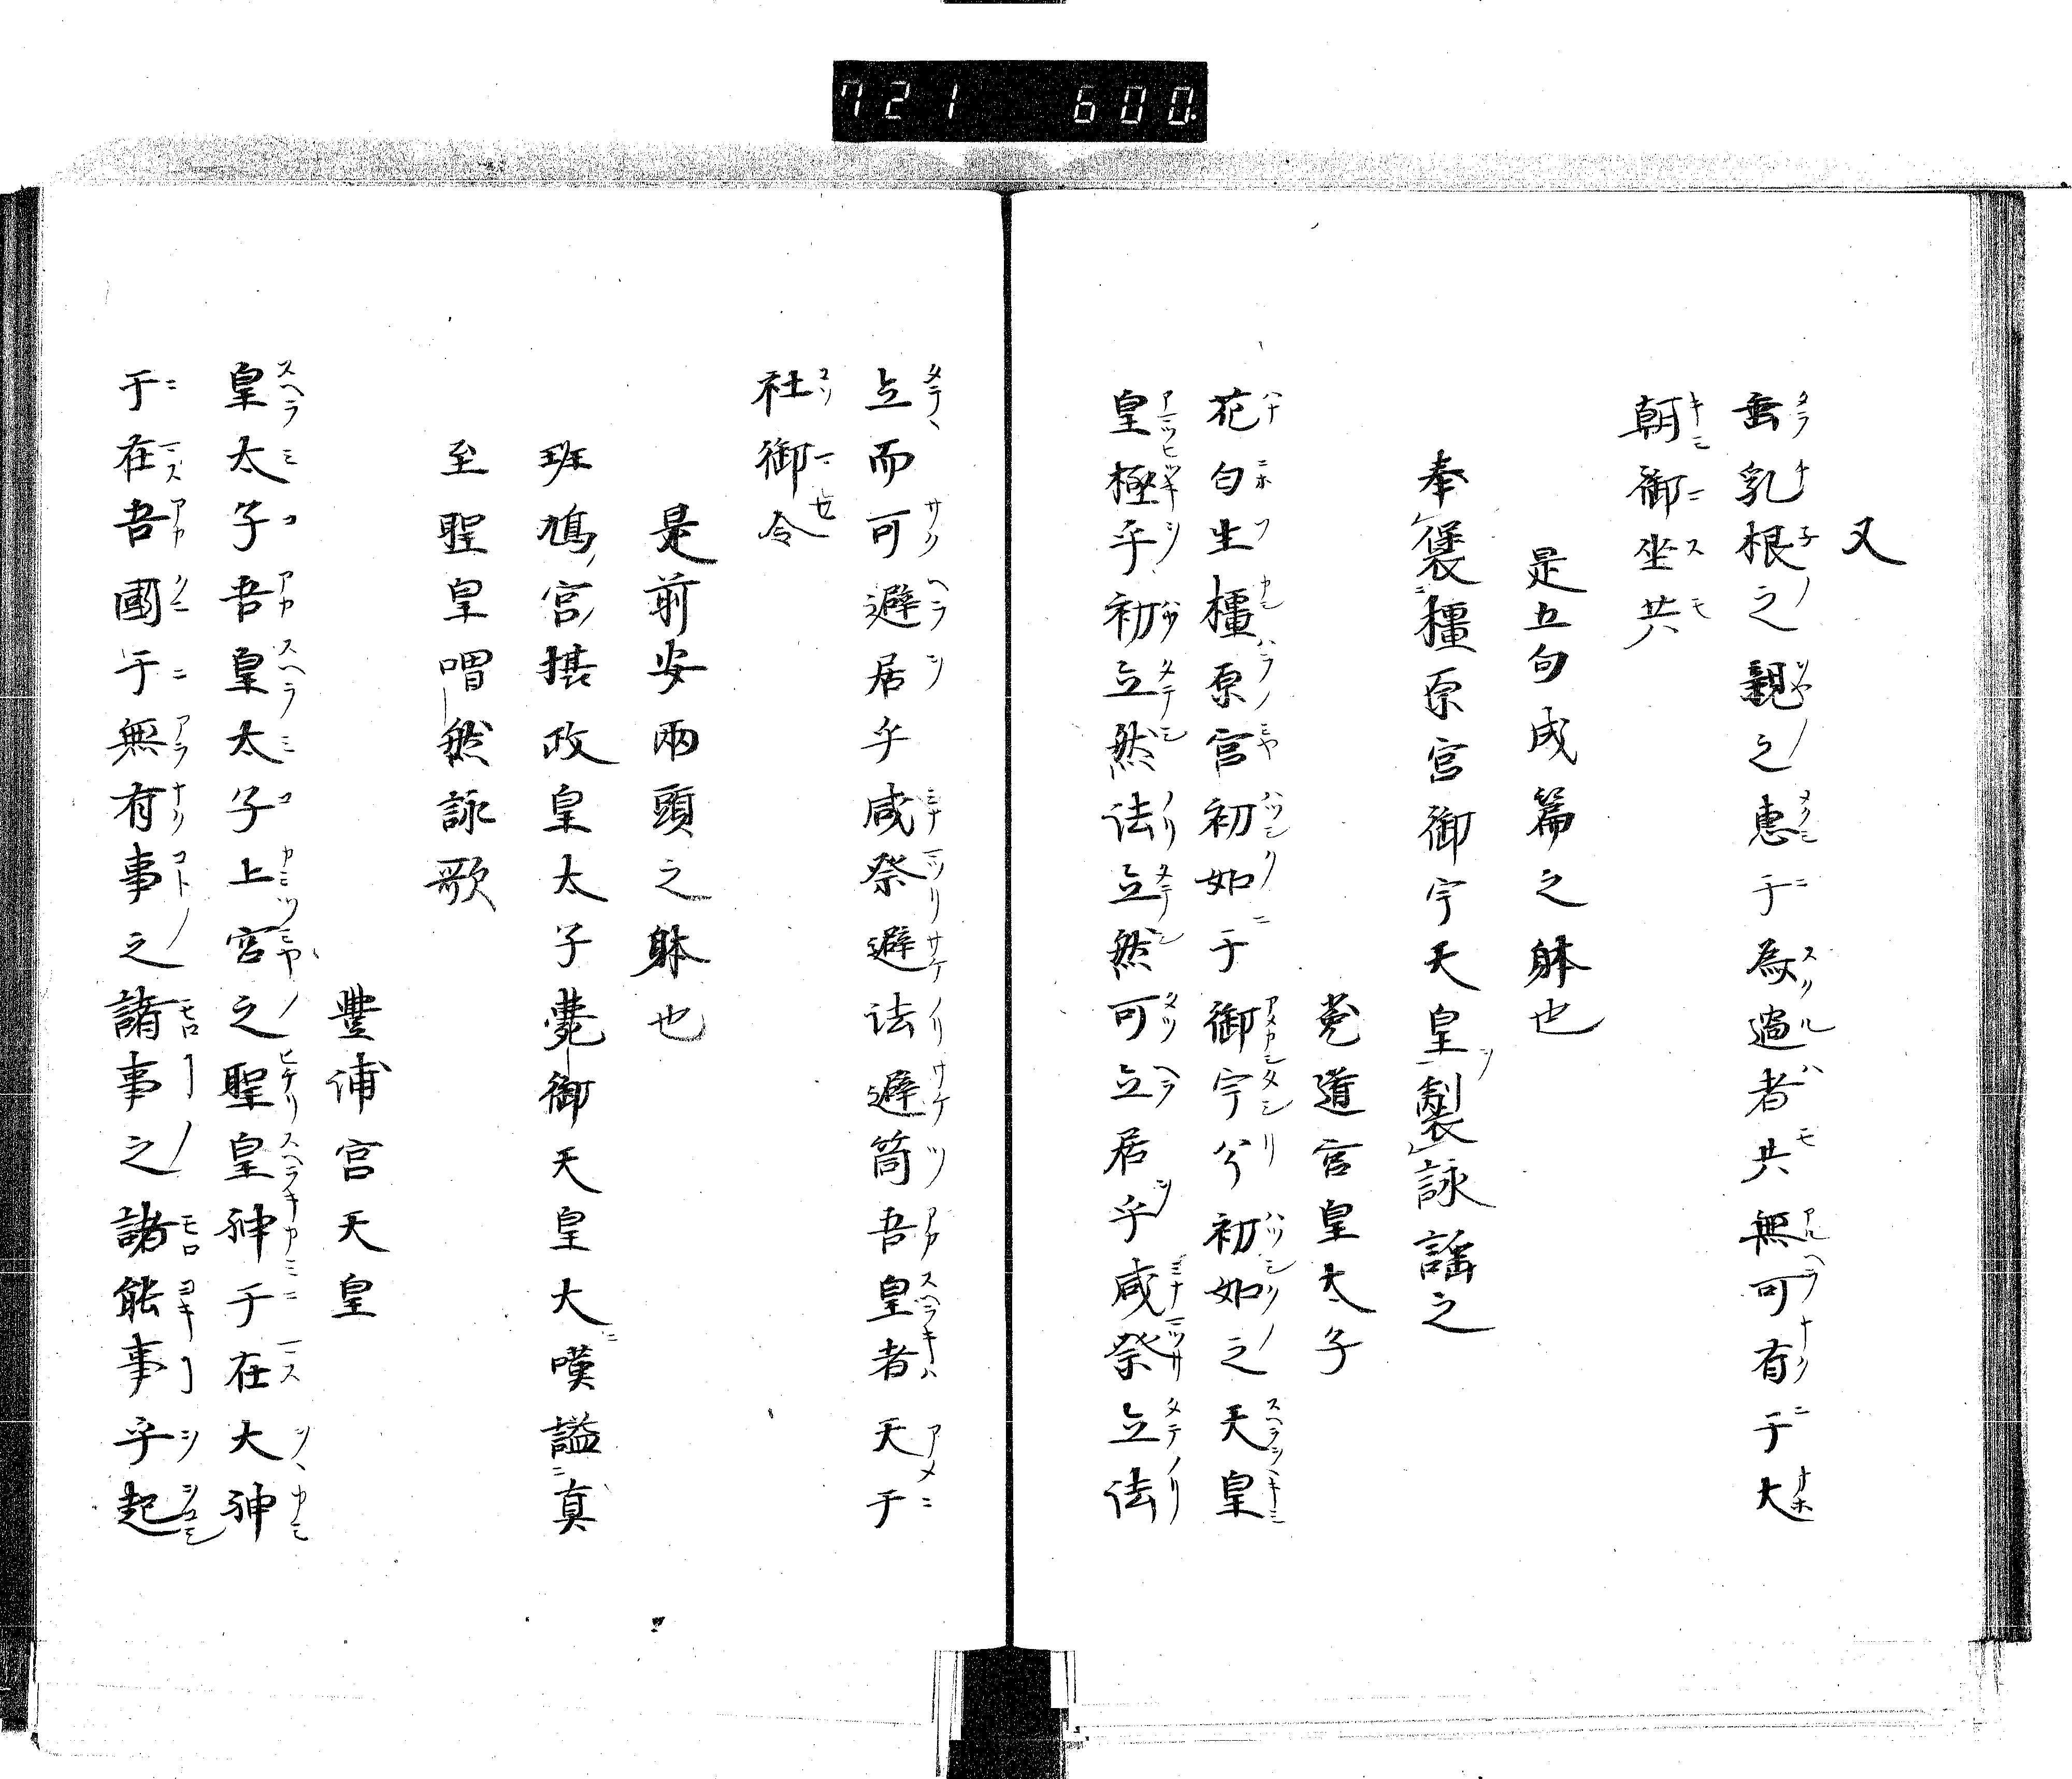 721 600
又
垂乳根之親之惠于為過者共無可有于大
朝御坐共
是五句成篇之躰也
奉褒橿原宮御宇天皇製詠謡之
菟道宮皇太子
花匂生橿原宮初如于御宇兮初如之天皇
皇極乎初立然法立然可立居乎咸祭立法
立而可避居乎咸祭避法避筒吾皇者天于
社御令
是前安兩頭之躰也
班鳩宮摂政皇太子薨御天皇大嘆謚真
至聖皇喟然詠歌
豐浦宮天皇
皇太子吾皇太子上宮之聖皇神于在大神
于在吾國于無有事之諸事之諸能事乎起